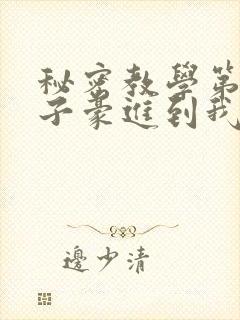 秘密教學第
子豪進到我
邊少清